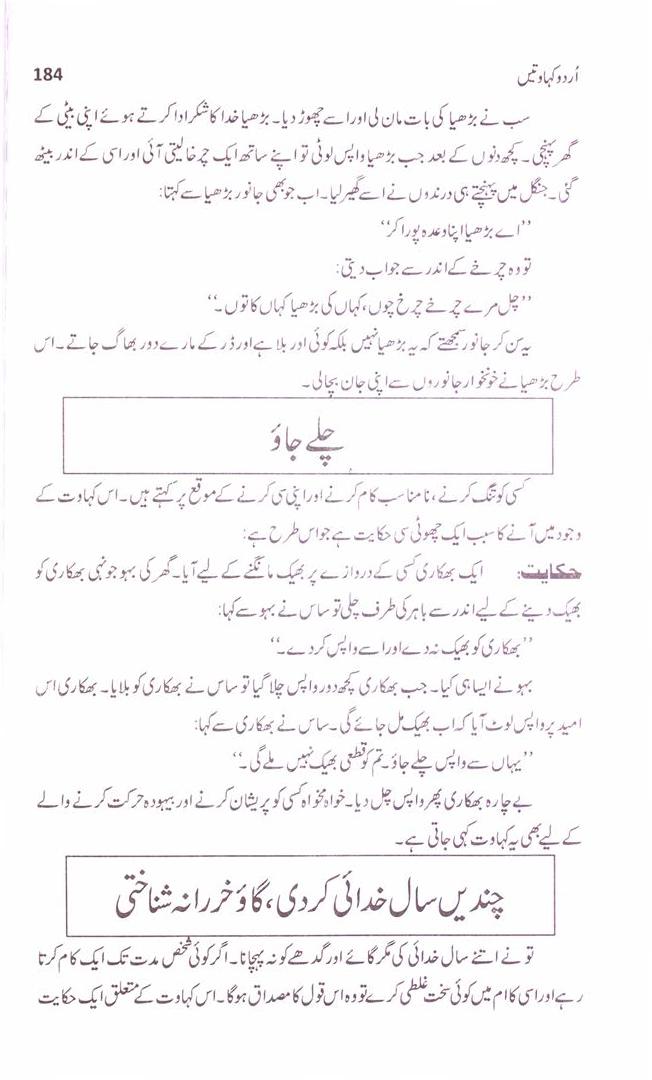 اُردو کہاوتیں 184
سب نے بڑھیا کی بات مان لی اور اسے چھوڑ دیا۔ بڑھیا خدا کا شکر ادا کرتے ہوئے اپنی بیٹی کے
گھر پہنچی۔ کچھ دنوں کے بعد جب بڑھیا واپس لوٹی تو اپنے ساتھ ایک چرخا لیتی آئی اور اسی کے اندر بیٹھ
گئی۔ جنگل میں پہنچتے ہی درندوں نے اسے گھیر لیا۔ اب جو بھی جانور بڑھیا سے کہتا:
’’اے بڑھیا اپنا وعدہ پورا کر‘‘
تو وہ چرخے کے اندر سے جواب دیتی:
’’چل مرے چرخے چرخ چوں، کہاں کی بڑھیا کہاں کا توں۔‘‘
یہ سن کر جانور سمجھتے کہ یہ بڑھیا نہیں بلکہ کوئی اور بلا ہے اور ڈر کے مارے دور بھاگ جاتے۔ اس
طرح بڑھیا نے خونخوار جانوروں سے اپنی جان بچالی۔
چلے جاؤ
کسی کو تنگ کرنے، نامناسب کام کرنے اور اپنی سی کرنے کے موقع پر کہتے ہیں۔ اس کہاوت کے
وجود میں آنے کا سبب ایک چھوٹی سی حکایت ہے جو اس طرح ہے:
حکایت: ایک بھکاری کسی کے دروازے پر بھیک مانگنے کے لیے آیا۔ گھر کی بہو جونہی بھکاری کو
بھیک دینے کے لیے اندر سے باہر کی طرف چلی تو ساس نے بہو سے کہا:
’’بھکاری کو بھیک نہ دے اور اسے واپس کر دے۔‘‘
بہو نے ایسا ہی کیا۔ جب بھکاری کچھ دور واپس چلا گیا تو ساس نے بھکاری کو بلایا۔ بھکاری اس
امید پر واپس لوٹ آیا کہ اب بھیک مل جائے گی۔ ساس نے بھکاری سے کہا:
’’یہاں سے واپس چلے جاؤ۔ تم کو قطعی بھیک نہیں ملے گی۔‘‘
بے چارہ بھکاری پھر واپس چل دیا۔ خواہ مخواہ کسی کو پریشان کرنے اور بیہودہ حرکت کرنے والے
کے لیے بھی یہ کہاوت کہی جاتی ہے۔
چندیں سال خدائی کردی، گاؤ خر را نہ شناختی
تو نے اتنے سال خدائی کی مگر گائے اور گدھے کو نہ پہچانا۔ اگر کوئی شخص مدت تک ایک کام کرتا
رہے اور اسی کا ام میں کوئی سخت غلطی کرے تو وہ اس قول کا مصداق ہوگا۔ اس کہاوت کے متعلق ایک حکایت